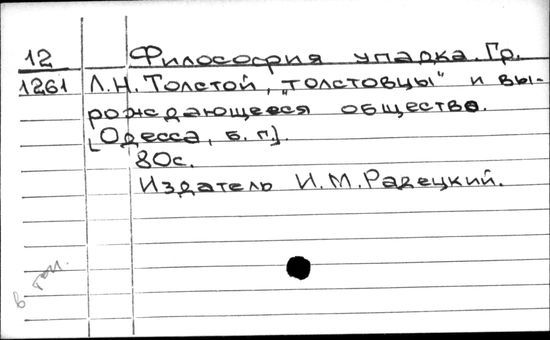 12 Философия упадка. Гр.
1261 Л.Н. Толстой, „толстовцы" и вы-
рождающееся общество.
[Одесса, б. г.].
80с.
Издатель И.М. Радецкий.